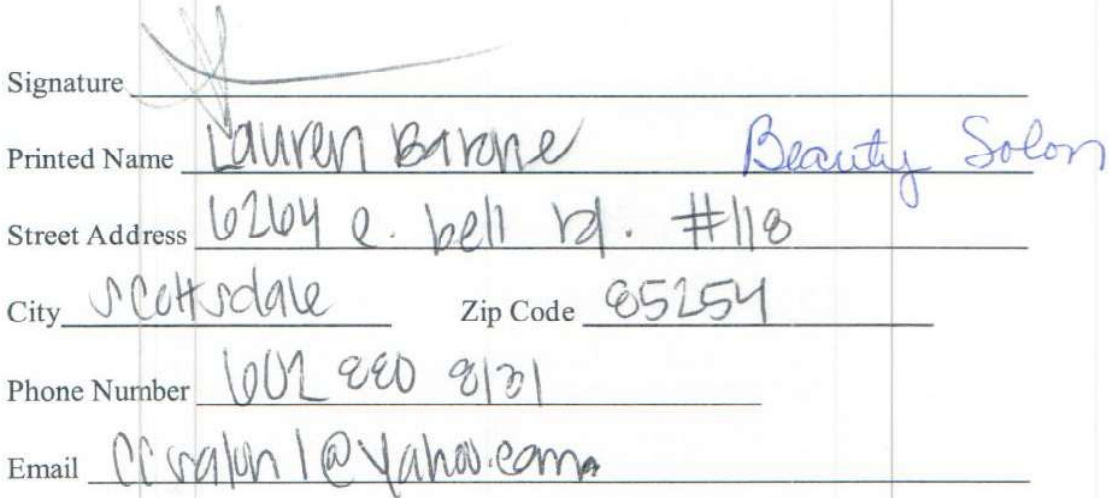 Signature
Printed Name Lauren Barone Beauty Solon
Street Address 6264 e. bell rd. #118
City Scottsdale Zip Code 85254
Phone Number 602 880 8131
Email ccsalon1@yahoo.com